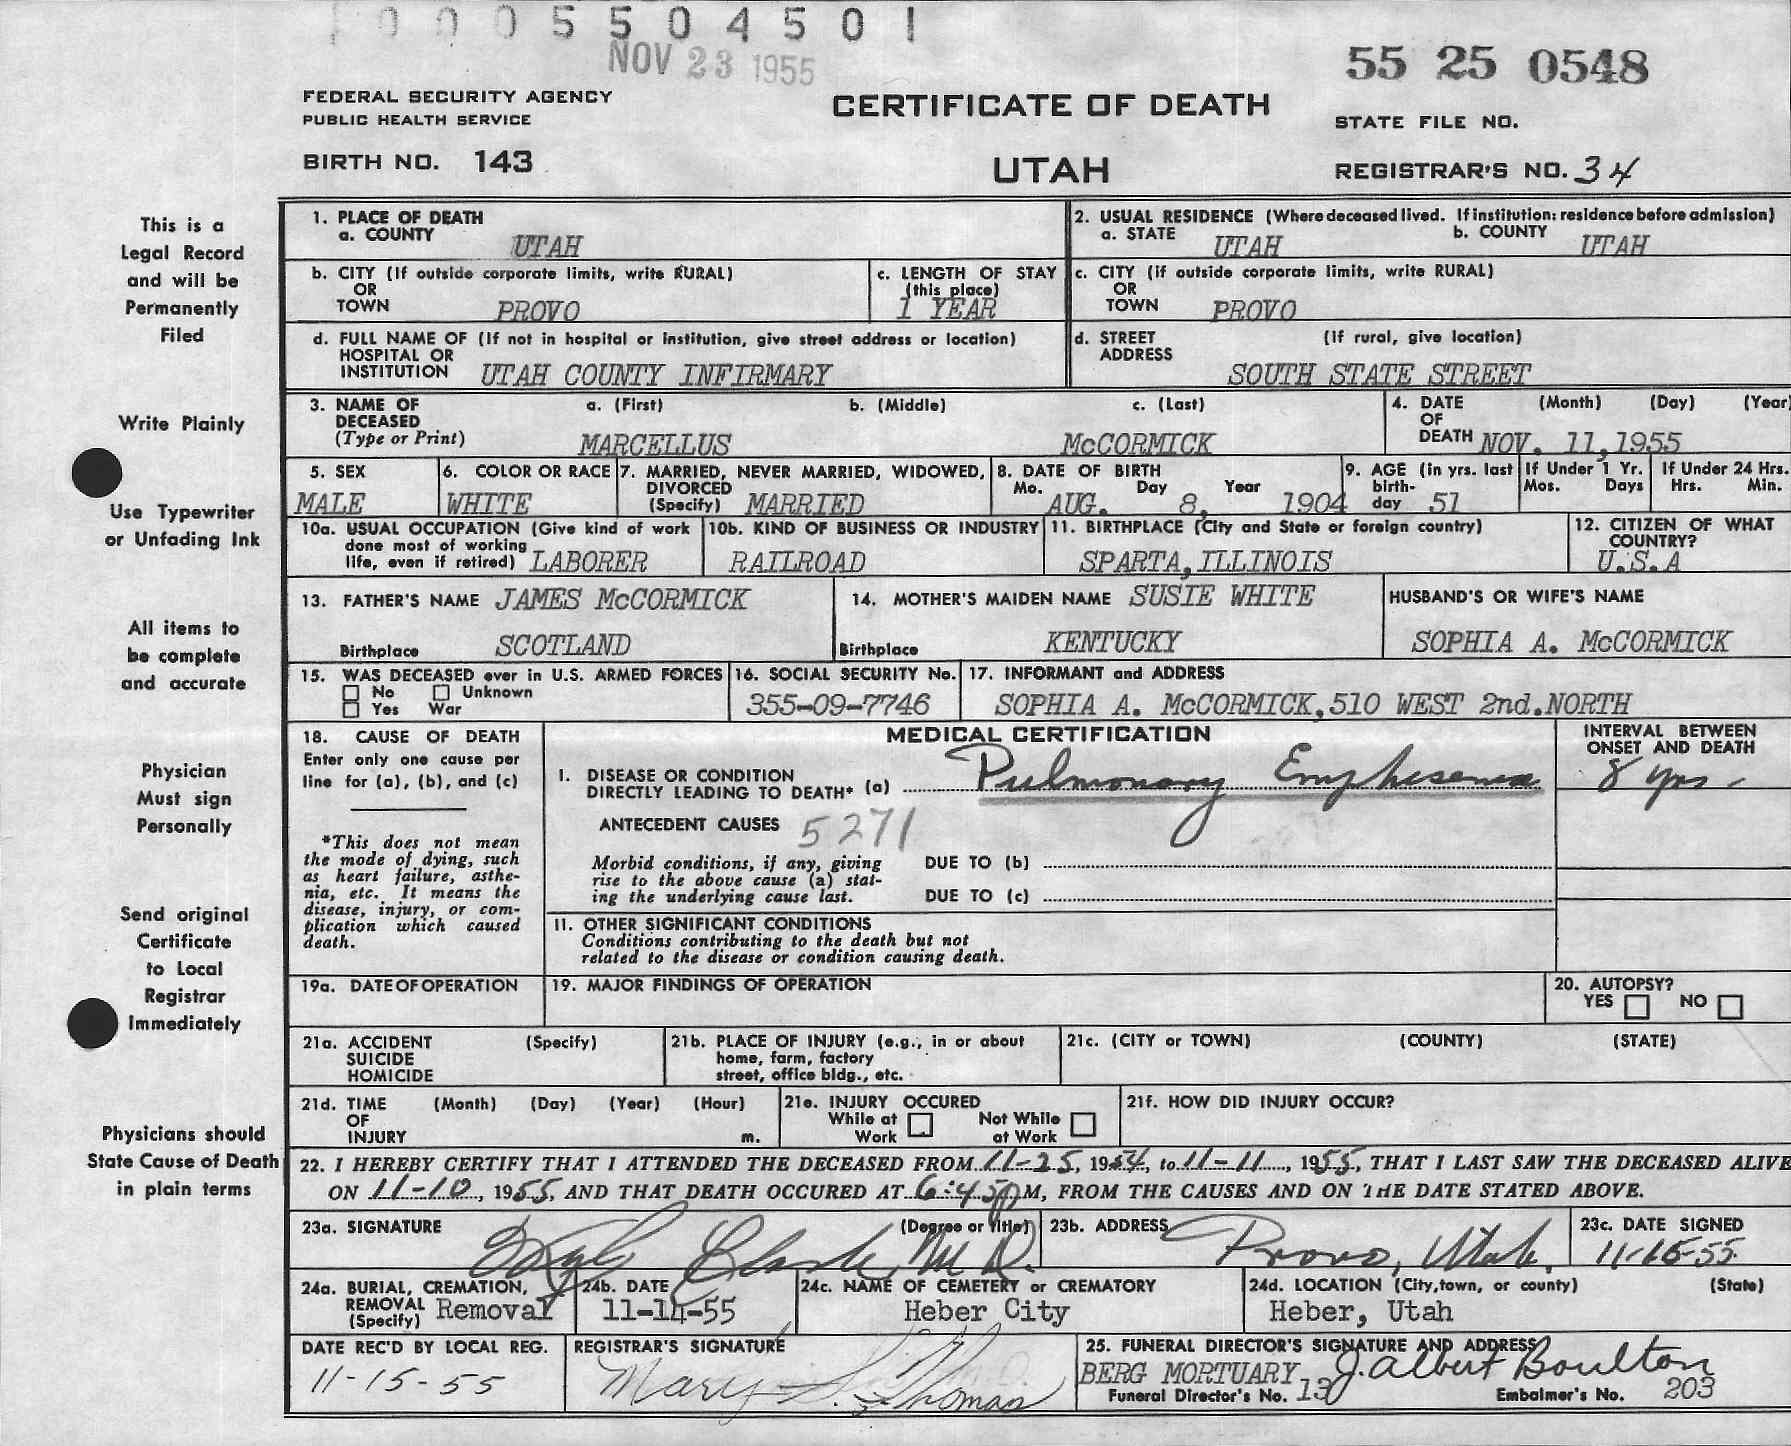 1 0 0 0 5 5 0 4 5 0 1
NOV 23 1955
55 25 0548
FEDERAL SECURITY AGENCY
PUBLIC HEALTH SERVICE
CERTIFICATE OF DEATH
STATE FILE NO.
BIRTH NO. 143
UTAH
REGISTRAR'S NO. 34
This is a
Legal Record
and will be
Permanently
Filed
Write Plainly
Use Typewriter
or Unfading Ink
All items to
be complete
and accurate
Physician
Must sign
Personally
Send original
Certificate
to Local
Registrar
Immediately
Physicians should
State Cause of Death
in plain terms
1. PLACE OF DEATH
a. COUNTY UTAH
2. USUAL RESIDENCE (Where deceased lived. If institution: residence before admission)
a. STATE UTAH b. COUNTY UTAH
b. CITY (If outside corporate limits, write RURAL)
OR
TOWN PROVO
c. LENGTH OF STAY
(this place)
1 YEAR
c. CITY (If outside corporate limits, write RURAL)
OR
TOWN PROVO
d. FULL NAME OF (If not in hospital or institution, give street address or location)
HOSPITAL OR
INSTITUTION UTAH COUNTY INFIRMARY
d. STREET (If rural, give location)
ADDRESS
SOUTH STATE STREET
3. NAME OF a. (First) b. (Middle) c. (Last)
DECEASED
(Type or Print) MARCELLUS McCORMICK
4. DATE (Month) (Day) (Year)
OF
DEATH NOV. 11, 1955
5. SEX
MALE
6. COLOR OR RACE
WHITE
7. MARRIED, NEVER MARRIED, WIDOWED,
DIVORCED
(Specify) MARRIED
8. DATE OF BIRTH
Mo. Day Year
AUG. 8, 1904
9. AGE (in yrs. last
birth-
day 51
If Under 1 Yr.
Mos. Days
If Under 24 Hrs.
Hrs. Min.
10a. USUAL OCCUPATION (Give kind of work
done most of working
life, even if retired) LABORER
10b. KIND OF BUSINESS OR INDUSTRY
RAILROAD
11. BIRTHPLACE (City and State or foreign country)
SPARTA, ILLINOIS
12. CITIZEN OF WHAT
COUNTRY?
U.S.A
13. FATHER'S NAME JAMES McCORMICK
Birthplace SCOTLAND
14. MOTHER'S MAIDEN NAME SUSIE WHITE
Birthplace KENTUCKY
HUSBAND'S OR WIFE'S NAME
SOPHIA A. McCORMICK
15. WAS DECEASED ever in U.S. ARMED FORCES
No Unknown
Yes War
16. SOCIAL SECURITY No.
355-09-7746
17. INFORMANT and ADDRESS
SOPHIA A. McCORMICK, 510 WEST 2nd. NORTH
18. CAUSE OF DEATH
Enter only one cause per
line for (a), (b), and (c)
*This does not mean
the mode of dying, such
as heart failure, asthe-
nia, etc. It means the
disease, injury, or com-
plication which caused
death.
MEDICAL CERTIFICATION
INTERVAL BETWEEN
ONSET AND DEATH
I. DISEASE OR CONDITION
DIRECTLY LEADING TO DEATH* (a) Pulmonary Emphysema
8 yrs -
ANTECEDENT CAUSES 5271
Morbid conditions, if any, giving
rise to the above cause (a) stat-
ing the underlying cause last.
DUE TO (b)
DUE TO (c)
11. OTHER SIGNIFICANT CONDITIONS
Conditions contributing to the death but not
related to the disease or condition causing death.
19a. DATE OF OPERATION
19. MAJOR FINDINGS OF OPERATION
20. AUTOPSY?
YES NO
21a. ACCIDENT (Specify)
SUICIDE
HOMICIDE
21b. PLACE OF INJURY (e.g., in or about
home, farm, factory
street, office bldg., etc.
21c. (CITY or TOWN) (COUNTY) (STATE)
21d. TIME (Month) (Day) (Year) (Hour)
OF
INJURY m.
21e. INJURY OCCURED
While at Work Not While at Work
21f. HOW DID INJURY OCCUR?
22. I HEREBY CERTIFY THAT I ATTENDED THE DECEASED FROM 11-25, 1954, to 11-11, 1955, THAT I LAST SAW THE DECEASED ALIVE
ON 11-10, 1955, AND THAT DEATH OCCURED AT 6:45 PM, FROM THE CAUSES AND ON THE DATE STATED ABOVE.
23a. SIGNATURE (Degree or title)
Clark, M.D.
23b. ADDRESS
Provo, Utah.
23c. DATE SIGNED
11-15-55
24a. BURIAL, CREMATION,
REMOVAL
(Specify) Removal
24b. DATE
11-14-55
24c. NAME OF CEMETERY or CREMATORY
Heber City
24d. LOCATION (City, town, or county) (State)
Heber, Utah
DATE REC'D BY LOCAL REG.
11-15-55
REGISTRAR'S SIGNATURE
Mary S. Thomas
25. FUNERAL DIRECTOR'S SIGNATURE AND ADDRESS
BERG MORTUARY J. Albert Boulton
Funeral Director's No. 13 Embalmer's No. 203